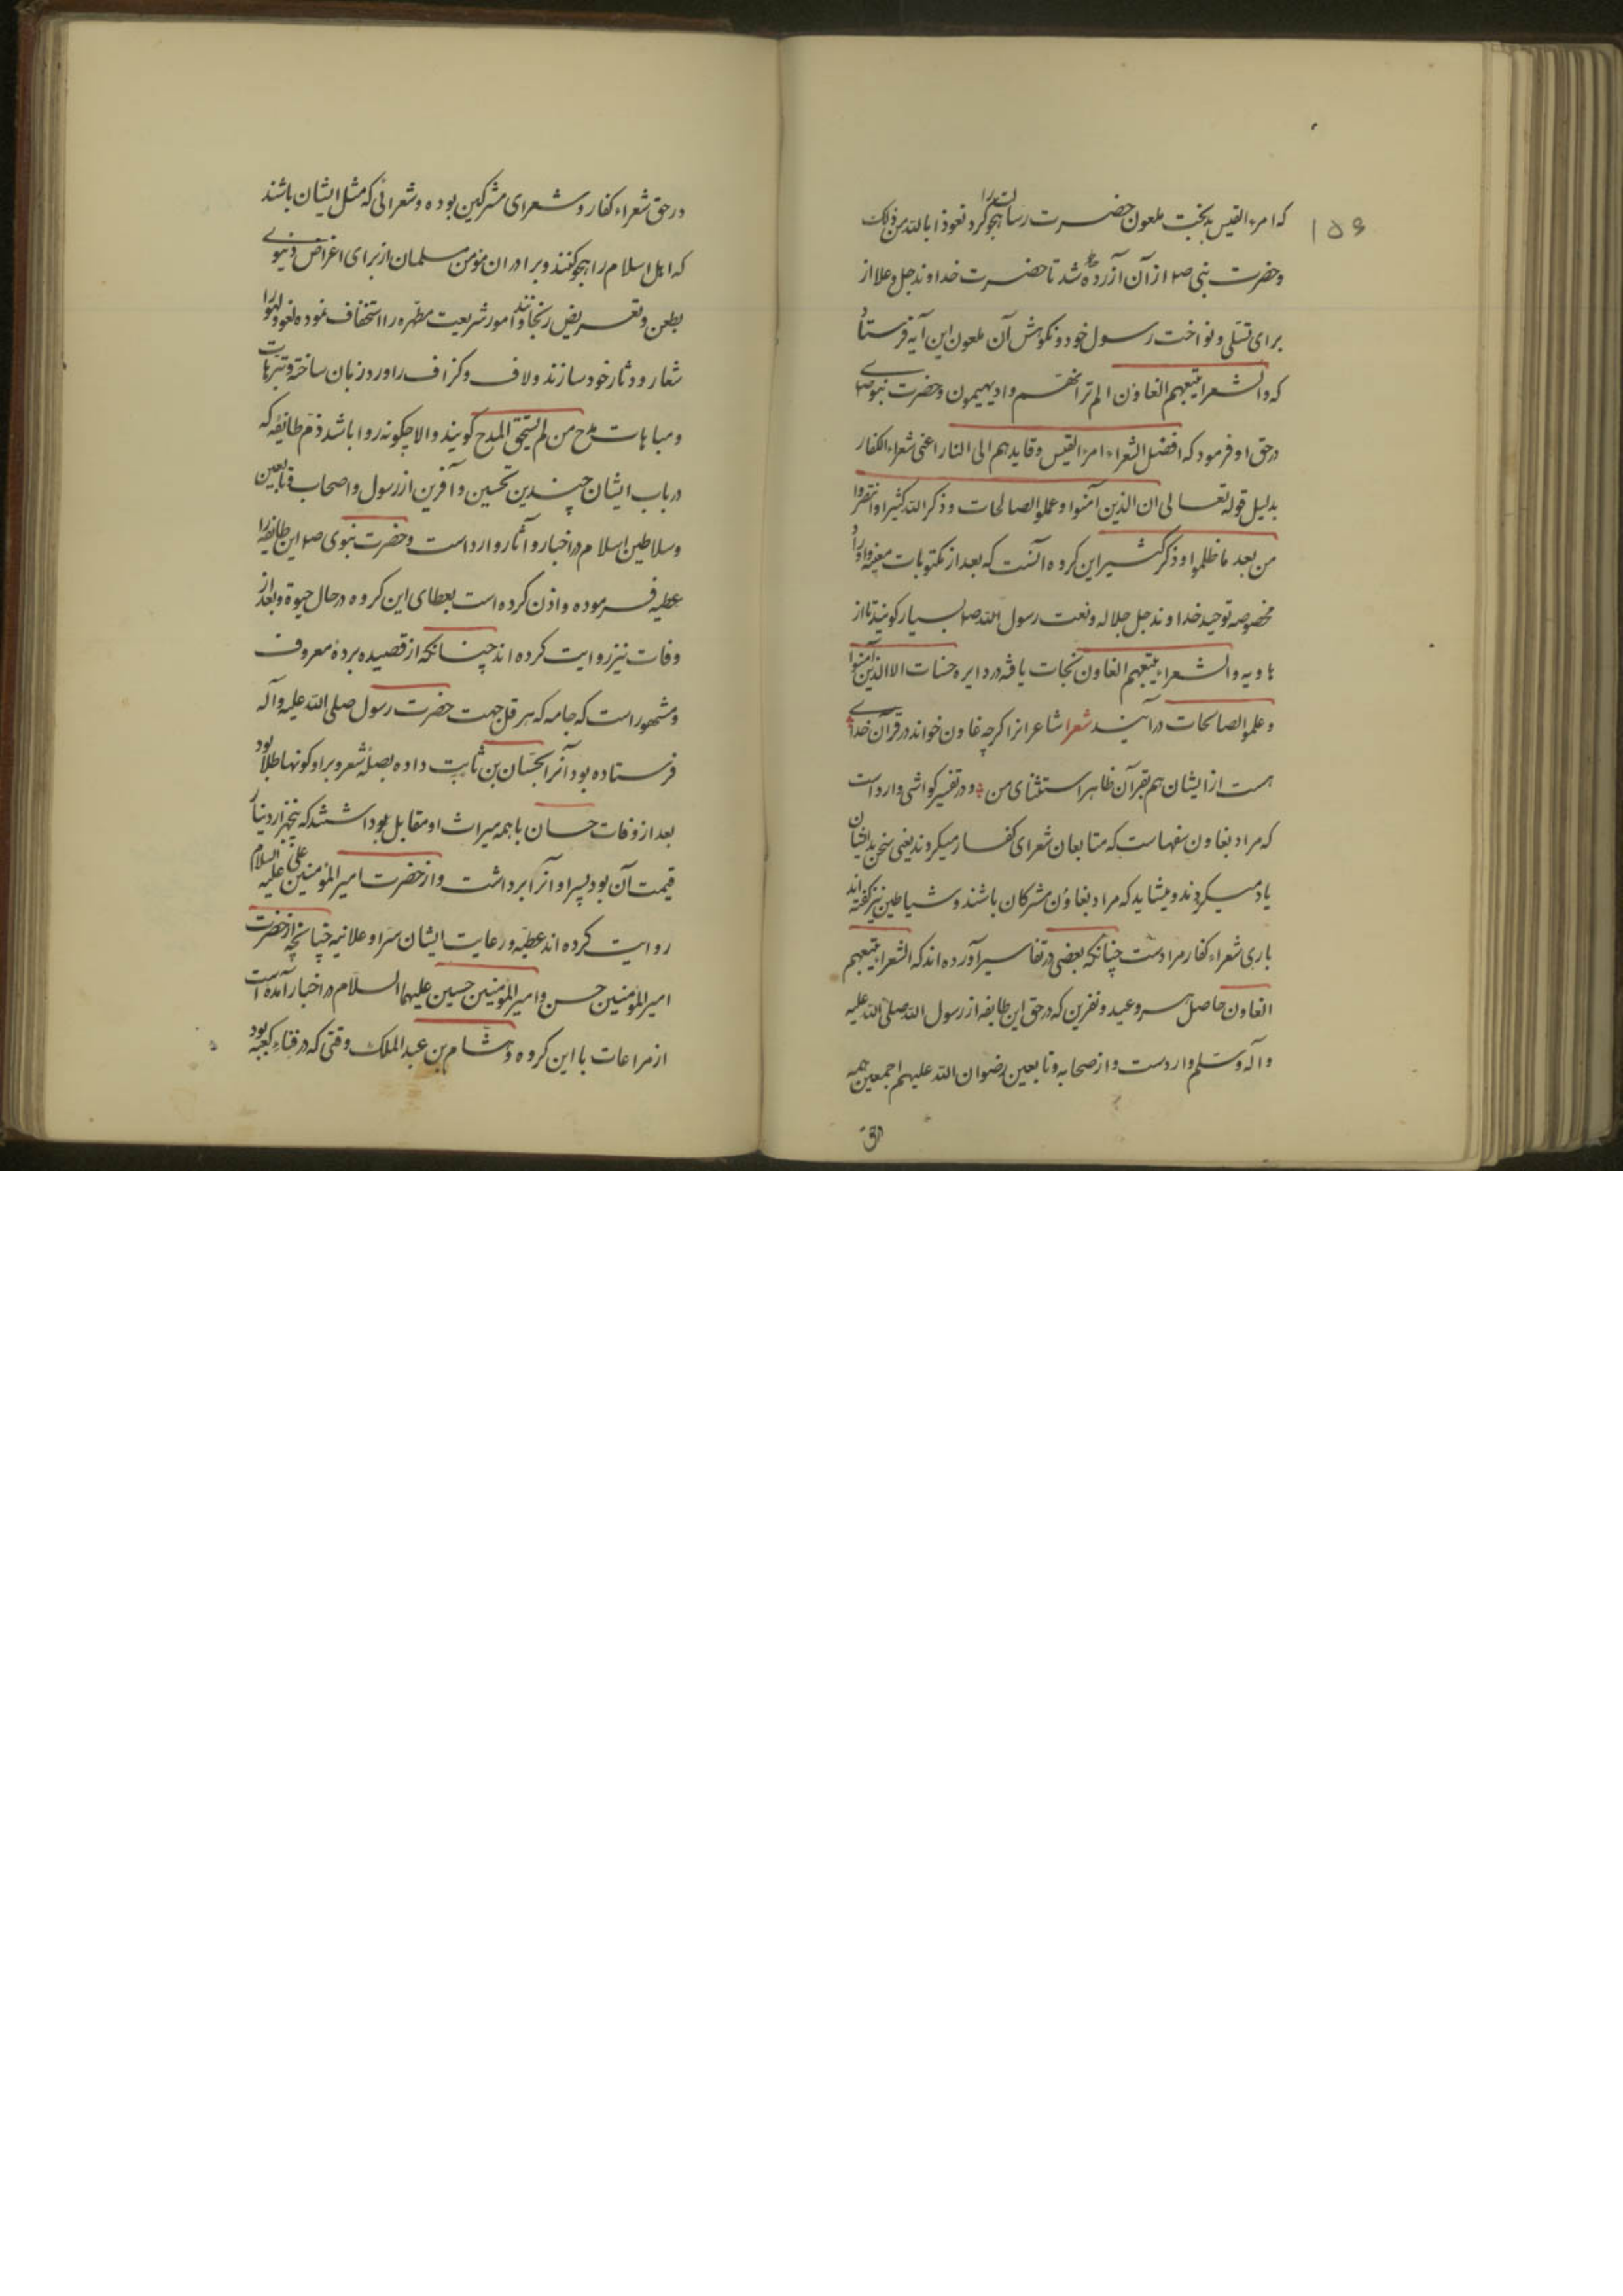 ۱۵۶
که امرء القیس بدبخت ملعون حضرت رسالت را هجو کرد نعوذ بالله من ذلک
وحضرت نبی صم از آن آزرده شد تا حضرت خداوند جل وعلا از
برای تسلی ونواخت رسول خود ونکوهش آن ملعون این آیه فرستاد
که والشعرا یتبعهم الغاون الم تر انهم واد یهیمون وحضرت نبوی صم
درحق او فرمود که افضل الشعراء امرء القیس وقایدهم الی النار اعنی شعراء الکفار
بدلیل قوله تعالی ان الذین آمنوا وعملوا الصالحات وذکر الله کثیرا وانتصروا
من بعد ما ظلموا وذکر کثیر این کروه آنست که بعد از مکتوبات معینه واوراد
مخصوصه توحید خداوند جل جلاله ونعت رسول الله صم بسیار کویند تا از
هاویه والشعراء یتبعهم الغاون نجات یافته در دایره حسنات الا الذین آمنوا
وعملوا الصالحات درآیند شعرا شاعرانرا کرچه غاون خواند در قرآن خدای
هست از ایشان هم بقرآن ظاهر استثنای من ودر تفسیر کواشی وارد است
که مراد بغاون سفهاست که متابعان شعرای کفار میکردند یعنی سخن بد ایشان
یاد میکردند ومیشاید که مراد بغاون مشرکان باشند وشیاطین نیز کفته اند
باری شعراء کفار مرادست چنانکه بعضی در تفاسیر آورده اند که الشعراء یتبعهم
الغاون حاصل هر وعید ونفرین که درحق این طایفه از رسول الله صلی الله علیه
وآله وسلم واردست واز صحابه وتابعین رضوان الله علیهم اجمعین همه
درحق
درحق شعراء کفار وشعرای مشرکین بوده وشعرائی که مثل ایشان باشند
که اهل اسلام را هجو کنند وبرادران مؤمن مسلمان از برای اغراض دنیوی
بطعن وتعریض رنجانند وامور شریعت مطهره را استخفاف نموده لغو ولهو را
شعار ودثار خود سازند ولاف وکزاف را ورد زبان ساخته وترهات
ومباهات بمدح من لم یستحق المدح کویند والا چکونه روا باشد ذم طائفه که
درباب ایشان چندین تحسین وآفرین از رسول واصحاب وتابعین
وسلاطین اسلام در اخبار وآثار وارد است وحضرت نبوی صم این طایفه را
عطیه فرموده واذن کرده است بعطای این کروه درحال حیوة وبعد از
وفات نیز روایت کرده اند چنانکه از قصیده برده معروف
ومشهور است که جامه که هرقل جهت حضرت رسول صلی الله علیه وآله
فرستاده بود آنرا بحسان بن ثابت داده بصله شعر وبر او کونها طلا بود
بعد از وفات حسان با همه میراث او مقابل بود اشتند که پنجهزار دینار
قیمت آن بود پسر او آنرا برداشت واز حضرت امیر المؤمنین علی علیه السلام
روایت کرده اند عطیه ورعایت ایشان سرا وعلانیه چنانچه از حضرت
امیر المؤمنین حسن وامیر المؤمنین حسین علیهما السلام در اخبار آمده است
از مراعات با این کروه وهشام بن عبد الملک وقتی که در فناء کعبه بود